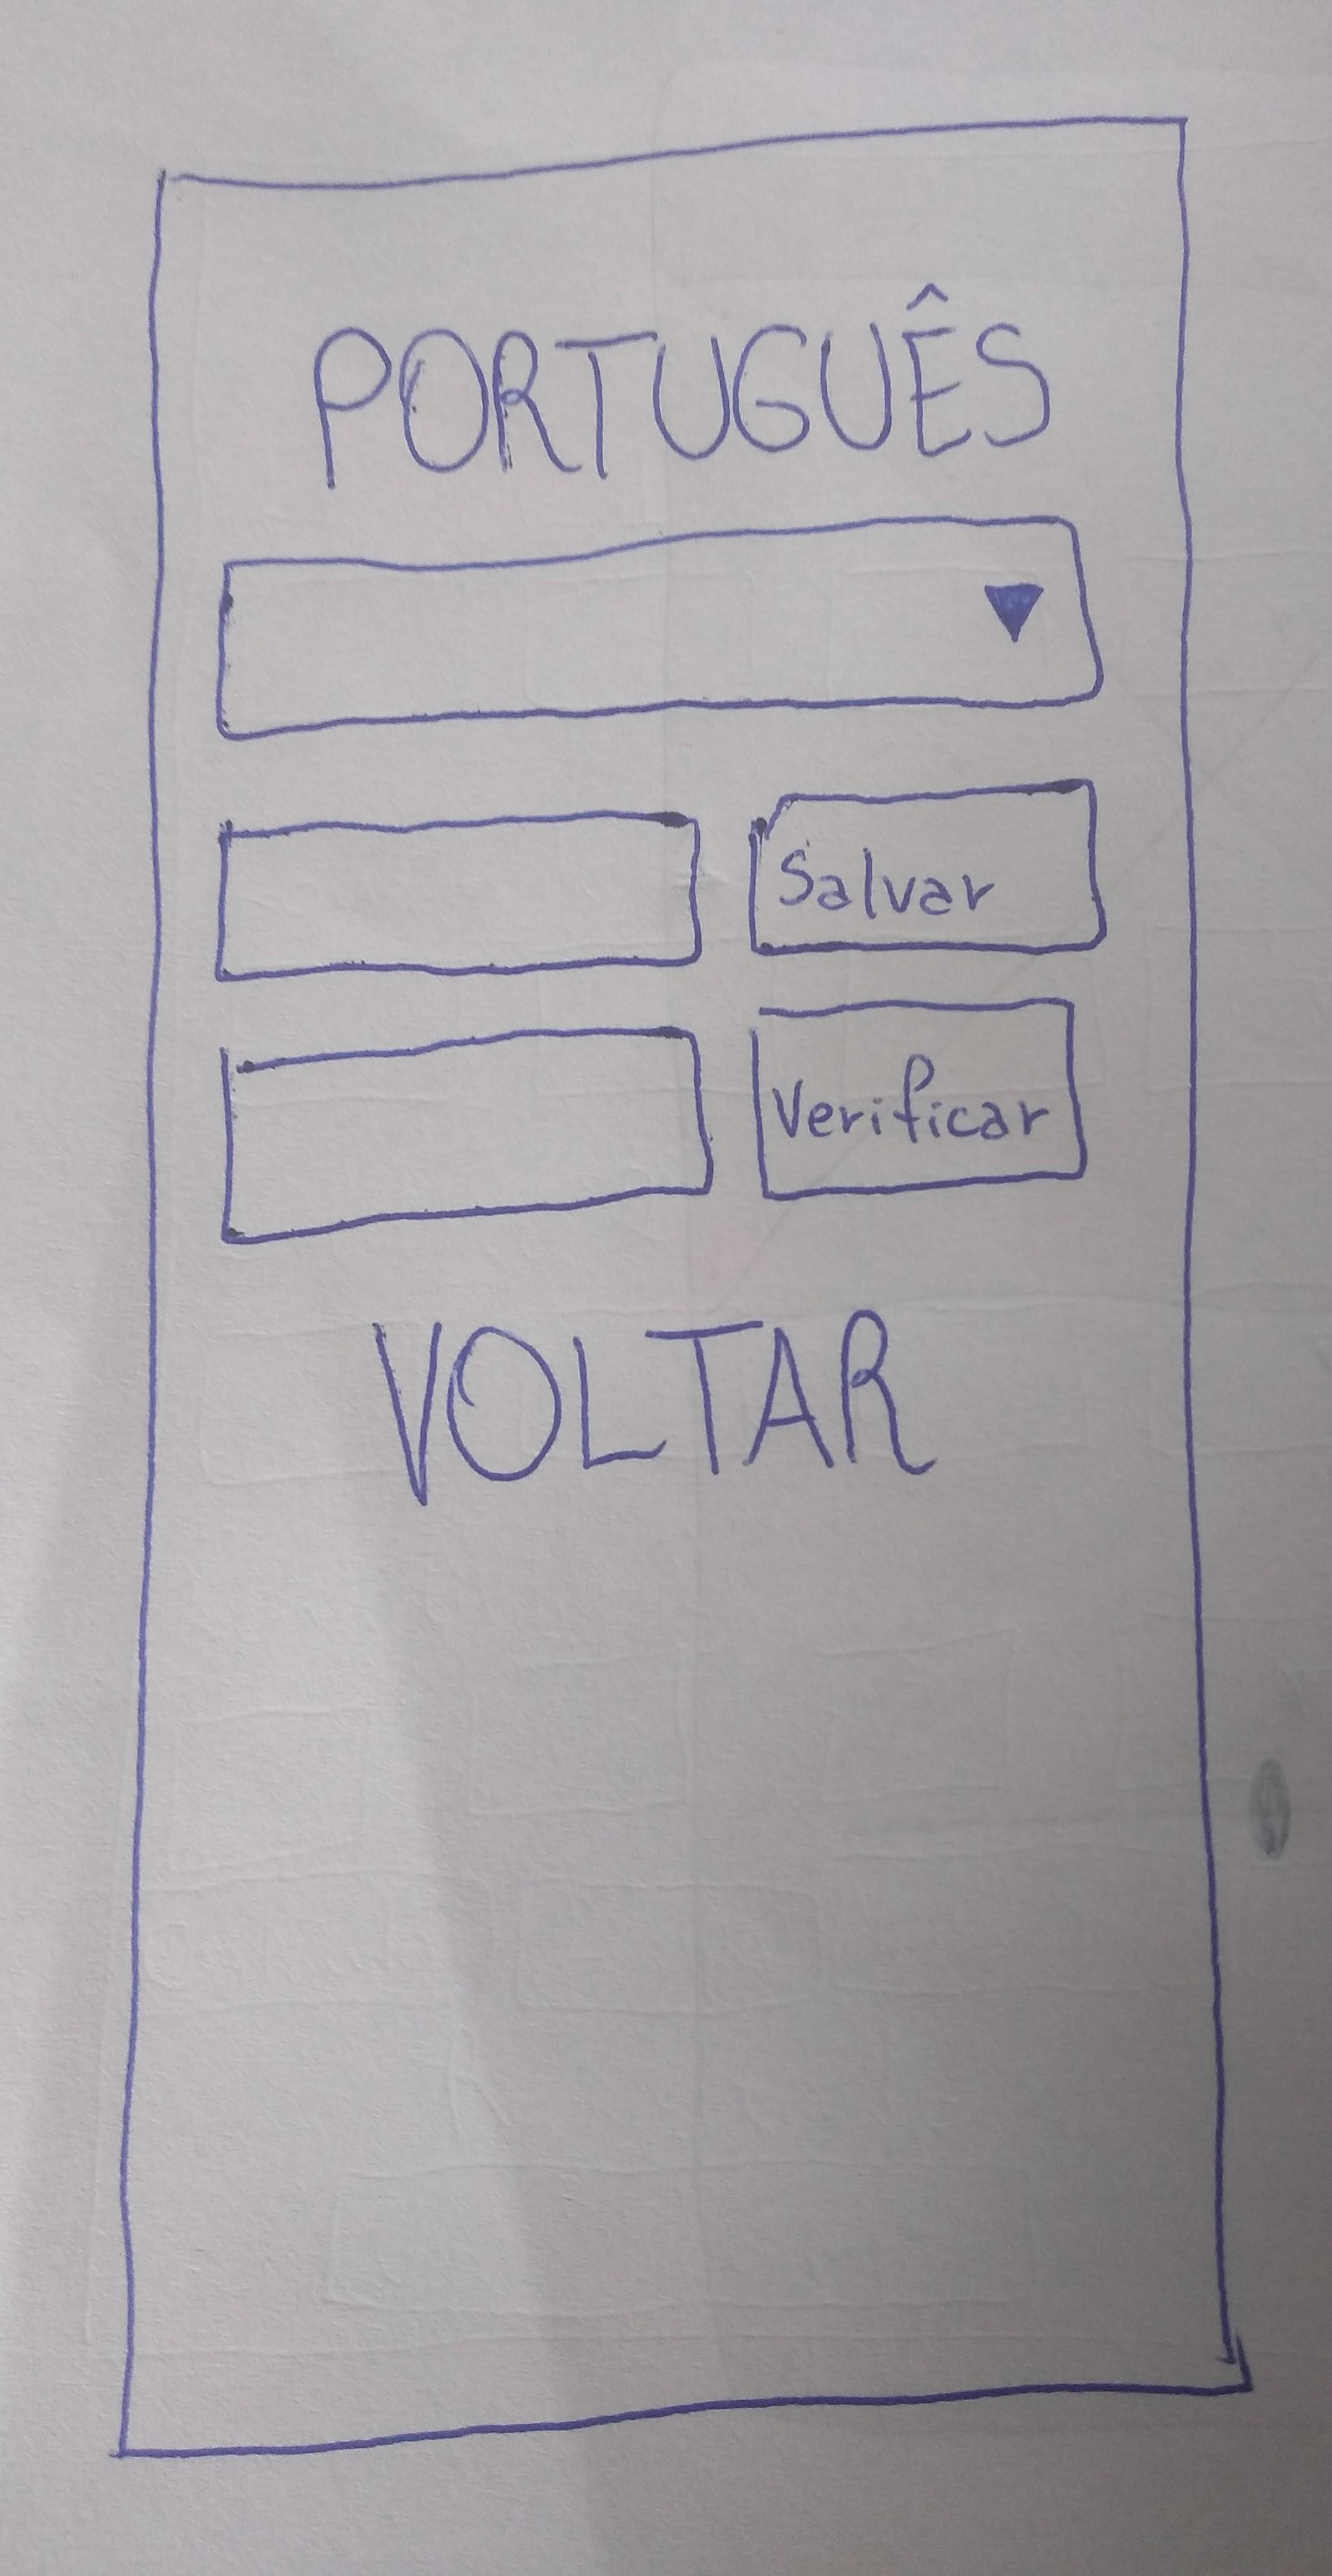 PORTUGUÊS
Salvar
Verificar
VOLTAR